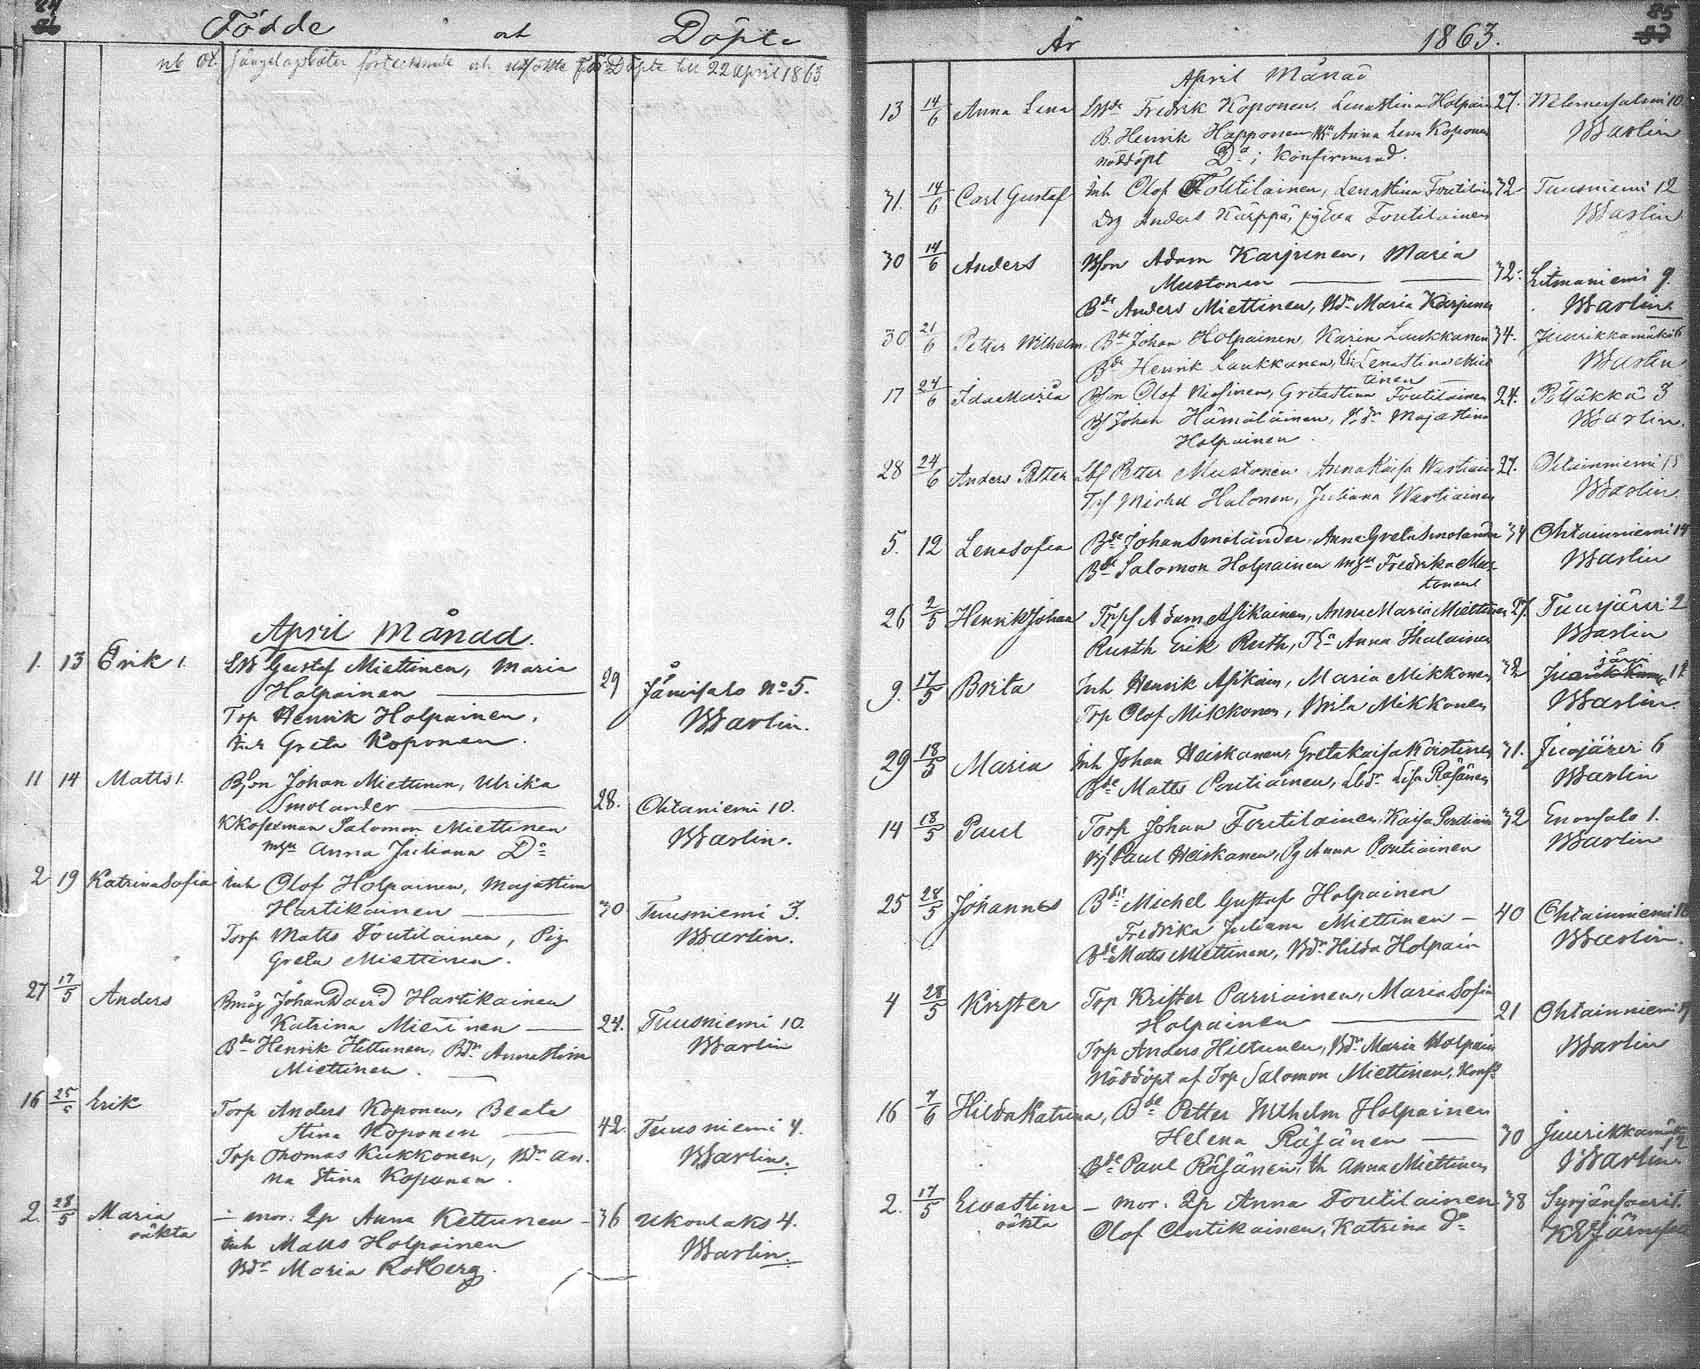 84
Födde och Döpte
nb
Döpte till 22 april 1863
April Månad.
1. 13 Erik 1. Gustaf Miettinen, Maria
Holpainen 29 Jänissalo No 5.
Torp Henrik Holpainen, Warlin.
Greta Koponen.
11 14 Matts 1. Bson Johan Miettinen, Ulrika
Smolander 28. Ohtaniemi 10.
Salomon Miettinen Warlin.
Anna Juliana Do
2 19 Katrina Sofia Inh Olof Holpainen, Majastina
Hartikainen 30 Tuusniemi 3.
Torp Matts Toutilainen, Pig Warlin.
Greta Miettinen.
27 17/5 Anders Johan David Hartikainen
Katrina Miettinen 24. Tuusniemi 10.
Bde Henrik Hiltunen, Bdr Annastina Warlin
Miettinen.
16 25/5 Erik Torp Anders Koponen, Beata
Stina Koponen 42. Tuusniemi 4.
Torp Thomas Kukkonen, Bdr An- Warlin.
na Stina Koponen.
2. 28/5 Maria oäkta mor: Anna Kettunen 36 Ukonlaks 4.
Inh Matts Holpainen Warlin.
Bdr Maria Rotberg.
85
År 1863.
April Månad
13 14/6 Anna Lena Fredrik Koponen, Lenastina Holpain 27. 10
B. Henrik Happonen Anna Lena Koponen Warlin
nöddöpt Do i Konfirmerad.
31. 14/6 Carl Gustaf Inh Olof Toutilainen, Lenastina Toutilain 32 Tuusniemi 12
Drg Anders Kärppä, pig Eva Toutilainen Warlin
30 14/6 Anders Bson Adam Karjunen, Maria
Mustonen 32. Litmaniemi 9.
Bde Anders Miettinen, Bdr Maria Karjunen Warlin.
30 21/6 Petter Wilhelm Bde Johan Holpainen, Karin Laukkanen 34. Juurikkamäki 6
Bde Henrik Laukkanen, Lenastina Miet Warlin
tinen
17 24/6 Ida Maria Bson Olof, Gretastina Toutilainen 24. Pölläkkä 3
Johan Hämäläinen, Majastina Warlin.
Holpainen.
28 24/6 Anders Petter Petter Mustonen Anna Kaisa Wartiain 27. Ohtainniemi 15
Michel Halonen, Juliana Wartiainen Warlin.
5. 12 Lena Sofia Bde Johan Smolander, Anna Greta Smolander 34 Ohtainniemi 14
Bde Salomon Holpainen Fredrika Mus- Warlin
tonen
26 2/5 Henrik Johan Adam Asikainen, Anna Maria Miettinen 27. Tuusjärvi 2
Rusth Erik Ruth, Anna Ihalainen Warlin
9. 17/5 Brita Inh Henrik Asikain, Maria Mikkonen 32 järvi 12
Torp Olof Mikkonen, Brita Mikkonen Warlin.
29 18/5 Maria Inh Johan Heiskanen, Greta Kaisa Koistinen 31. Juojärvi 6
Bde Matts Pontiainen, Lisa Räsänen Warlin
14 18/5 Paul Torp Johan Toutilainen, Kaisa Pontiain 32 Enonsalo 1.
Paul Heiskanen, Pg Anna Pontiainen Warlin
25 28/5 Johannes Bde Michel Gustaf Holpainen
Fredrika Juliana Miettinen 40 Ohtainniemi
Bde Matts Miettinen, Bdr Hilda Holpain Warlin.
4 28/5 Krister Torp Krister Parviainen, Maria Sofia
Holpainen 21 Ohtainniemi
Torp Anders Hiltunen, Bdr Maria Holpain Warlin
Nöddöpt af Torp Salomon Miettinen, Konf.
16 7/6 Hilda Katrina, Bde Petter Wilhelm Holpainen
Helena Räsänen 30 Juurikkamäki 12
Bde Paul Räsänen, Anna Miettinen Warlin
2. 17/5 Ewastina oäkta mor: Anna Toutilainen 38
Olof Antikainen, Katrina Do